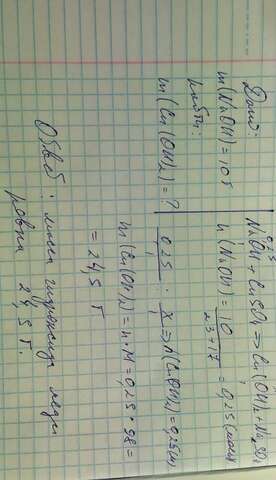 Дано:
m(NaOH)=10г
найти:
m(Cu(OH)2)=?
0,25
NaOH+CuSO4 → Cu(OH)2+Na2SO4
n(NaOH)=10/23+17=0,25(моль)
0,25/1 : x/1 ⇒ n(Cu(OH)2)=0,25(м)
m(Cu(OH)2)=n·M=0,25·98=
=24,5 г
Ответ: масса гидроксида меди
равна 24,5 г.